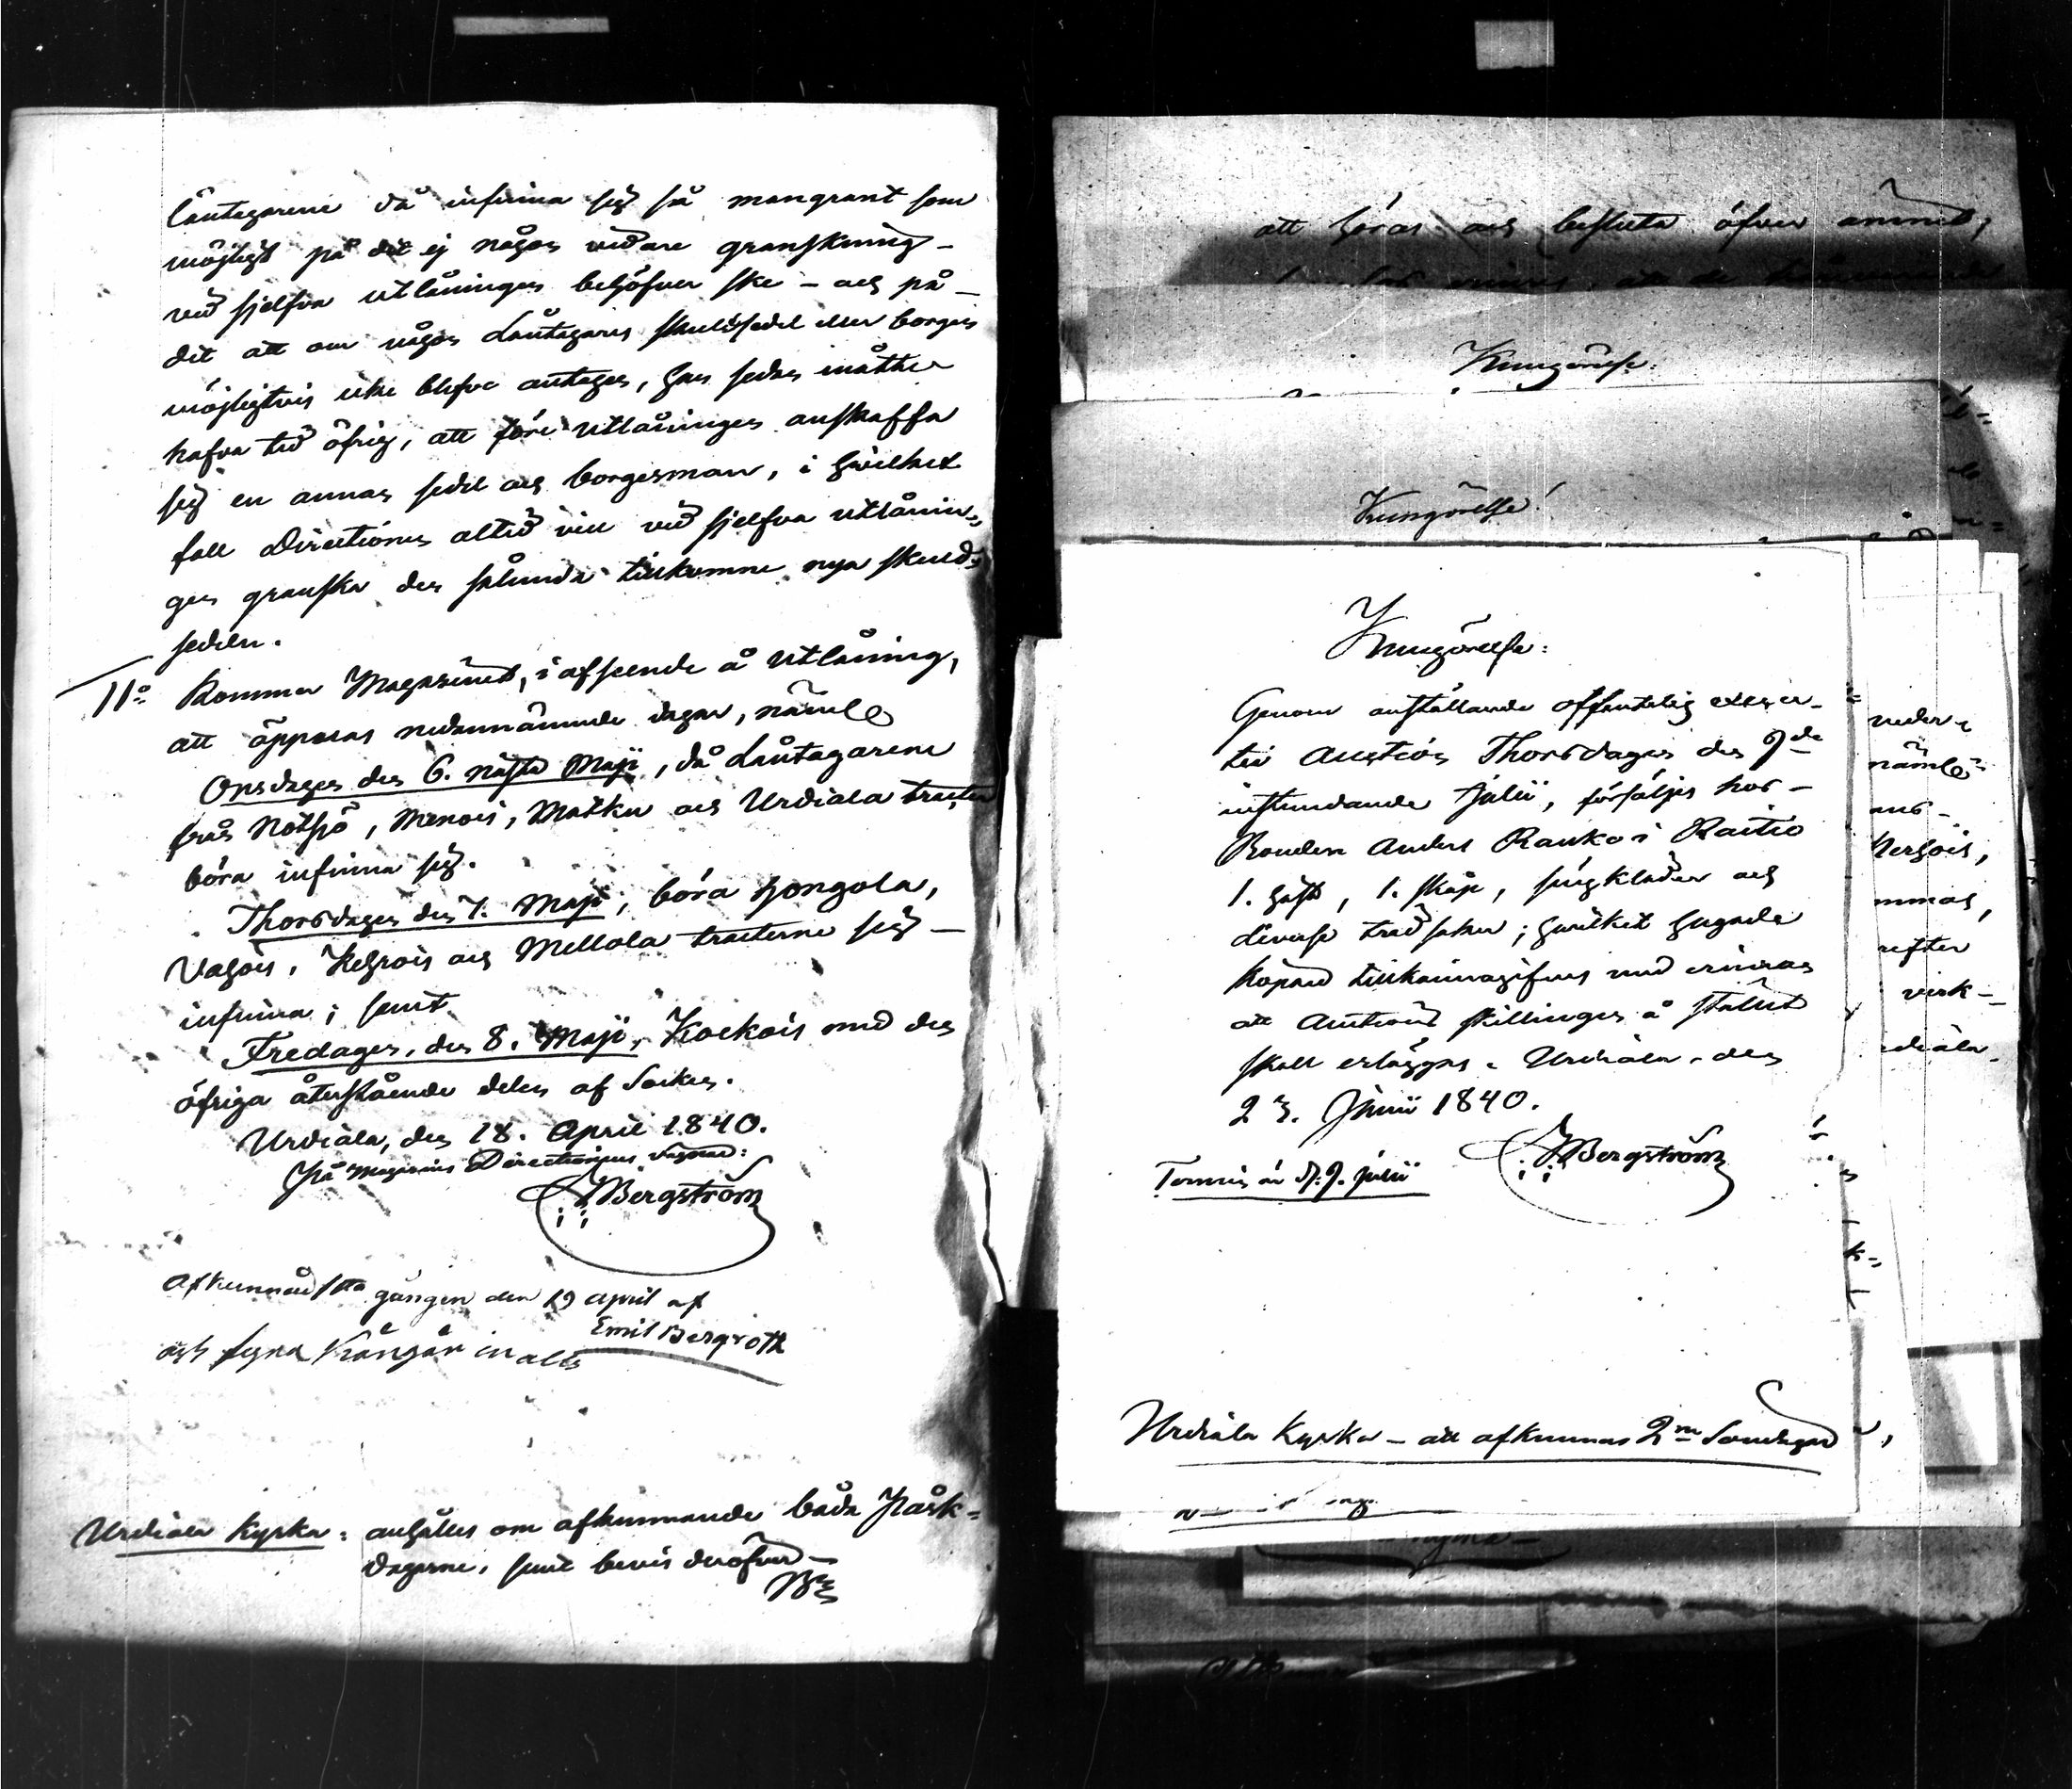 Låntagarene då infinna sig så mangrant som
möjligt på det ej någon vidare granskning
vid sjelfva utlåningen behöfver ske – och på
det att om någon Låntagares skuldsedel eller borgen
möjligtvis icke blefve antagen, han sedan måtte
hafva tid öfrig, att före utlåningen anskaffa
sig en annan sedel och borgesman, i hvilket
fall Directionen altid vill vid sjelfva utlånin-
gen granska den sålunda tillkomne nya skuld-
sedeln.
11o Kommer Magasinet, i afseende å utlåning,
att öppnas nedannämnde dagar, näml
Onsdagen den 6. nästa Maji, då Låntagarene
från Nötsjö, Menois, Matku och Urdiala tracten
böra infinna sig.
Thorsdagen den 7. Maji, böra Hongola,
Vahois, Kehrois och Mellola tracterne sig
infinna; samt
Fredagen, den 8. Maji, Kockois med den
öfriga återstående delen af Socken.
Urdiala, den 18. April 1840.
På Magasins Directionens vägnar:
Bergström
Afkunnad 1sta gången den 19 april af
Emil Bergroth
och Gångår in alles
Urdiala Kyrka: anhålles om afkunnande båda Påsk-
dagarne, samt bevis deröfver –
att höras och besluta öfver ämnet,
Kungörelse:
Kungörelse!
Kungörelse:
Genom anställande offentelig
Auction Thorsdagen den 9de
instundande Julii, försäljes hos
Bonden Anders Rauko i Raitio
1. häst, 1. skåp, sängkläder och
diverse trädsaker; hvilket hugade
köpare tillkännagifves med erinran
att Auctions skillingen å stället
skall erläggas. Urdiala, den
23. Junii 1840.
Bergström
Termin är d. 9. Julii
Urdiala Kyrka – att afkunnas 2ne Söndagar
näml
virk-